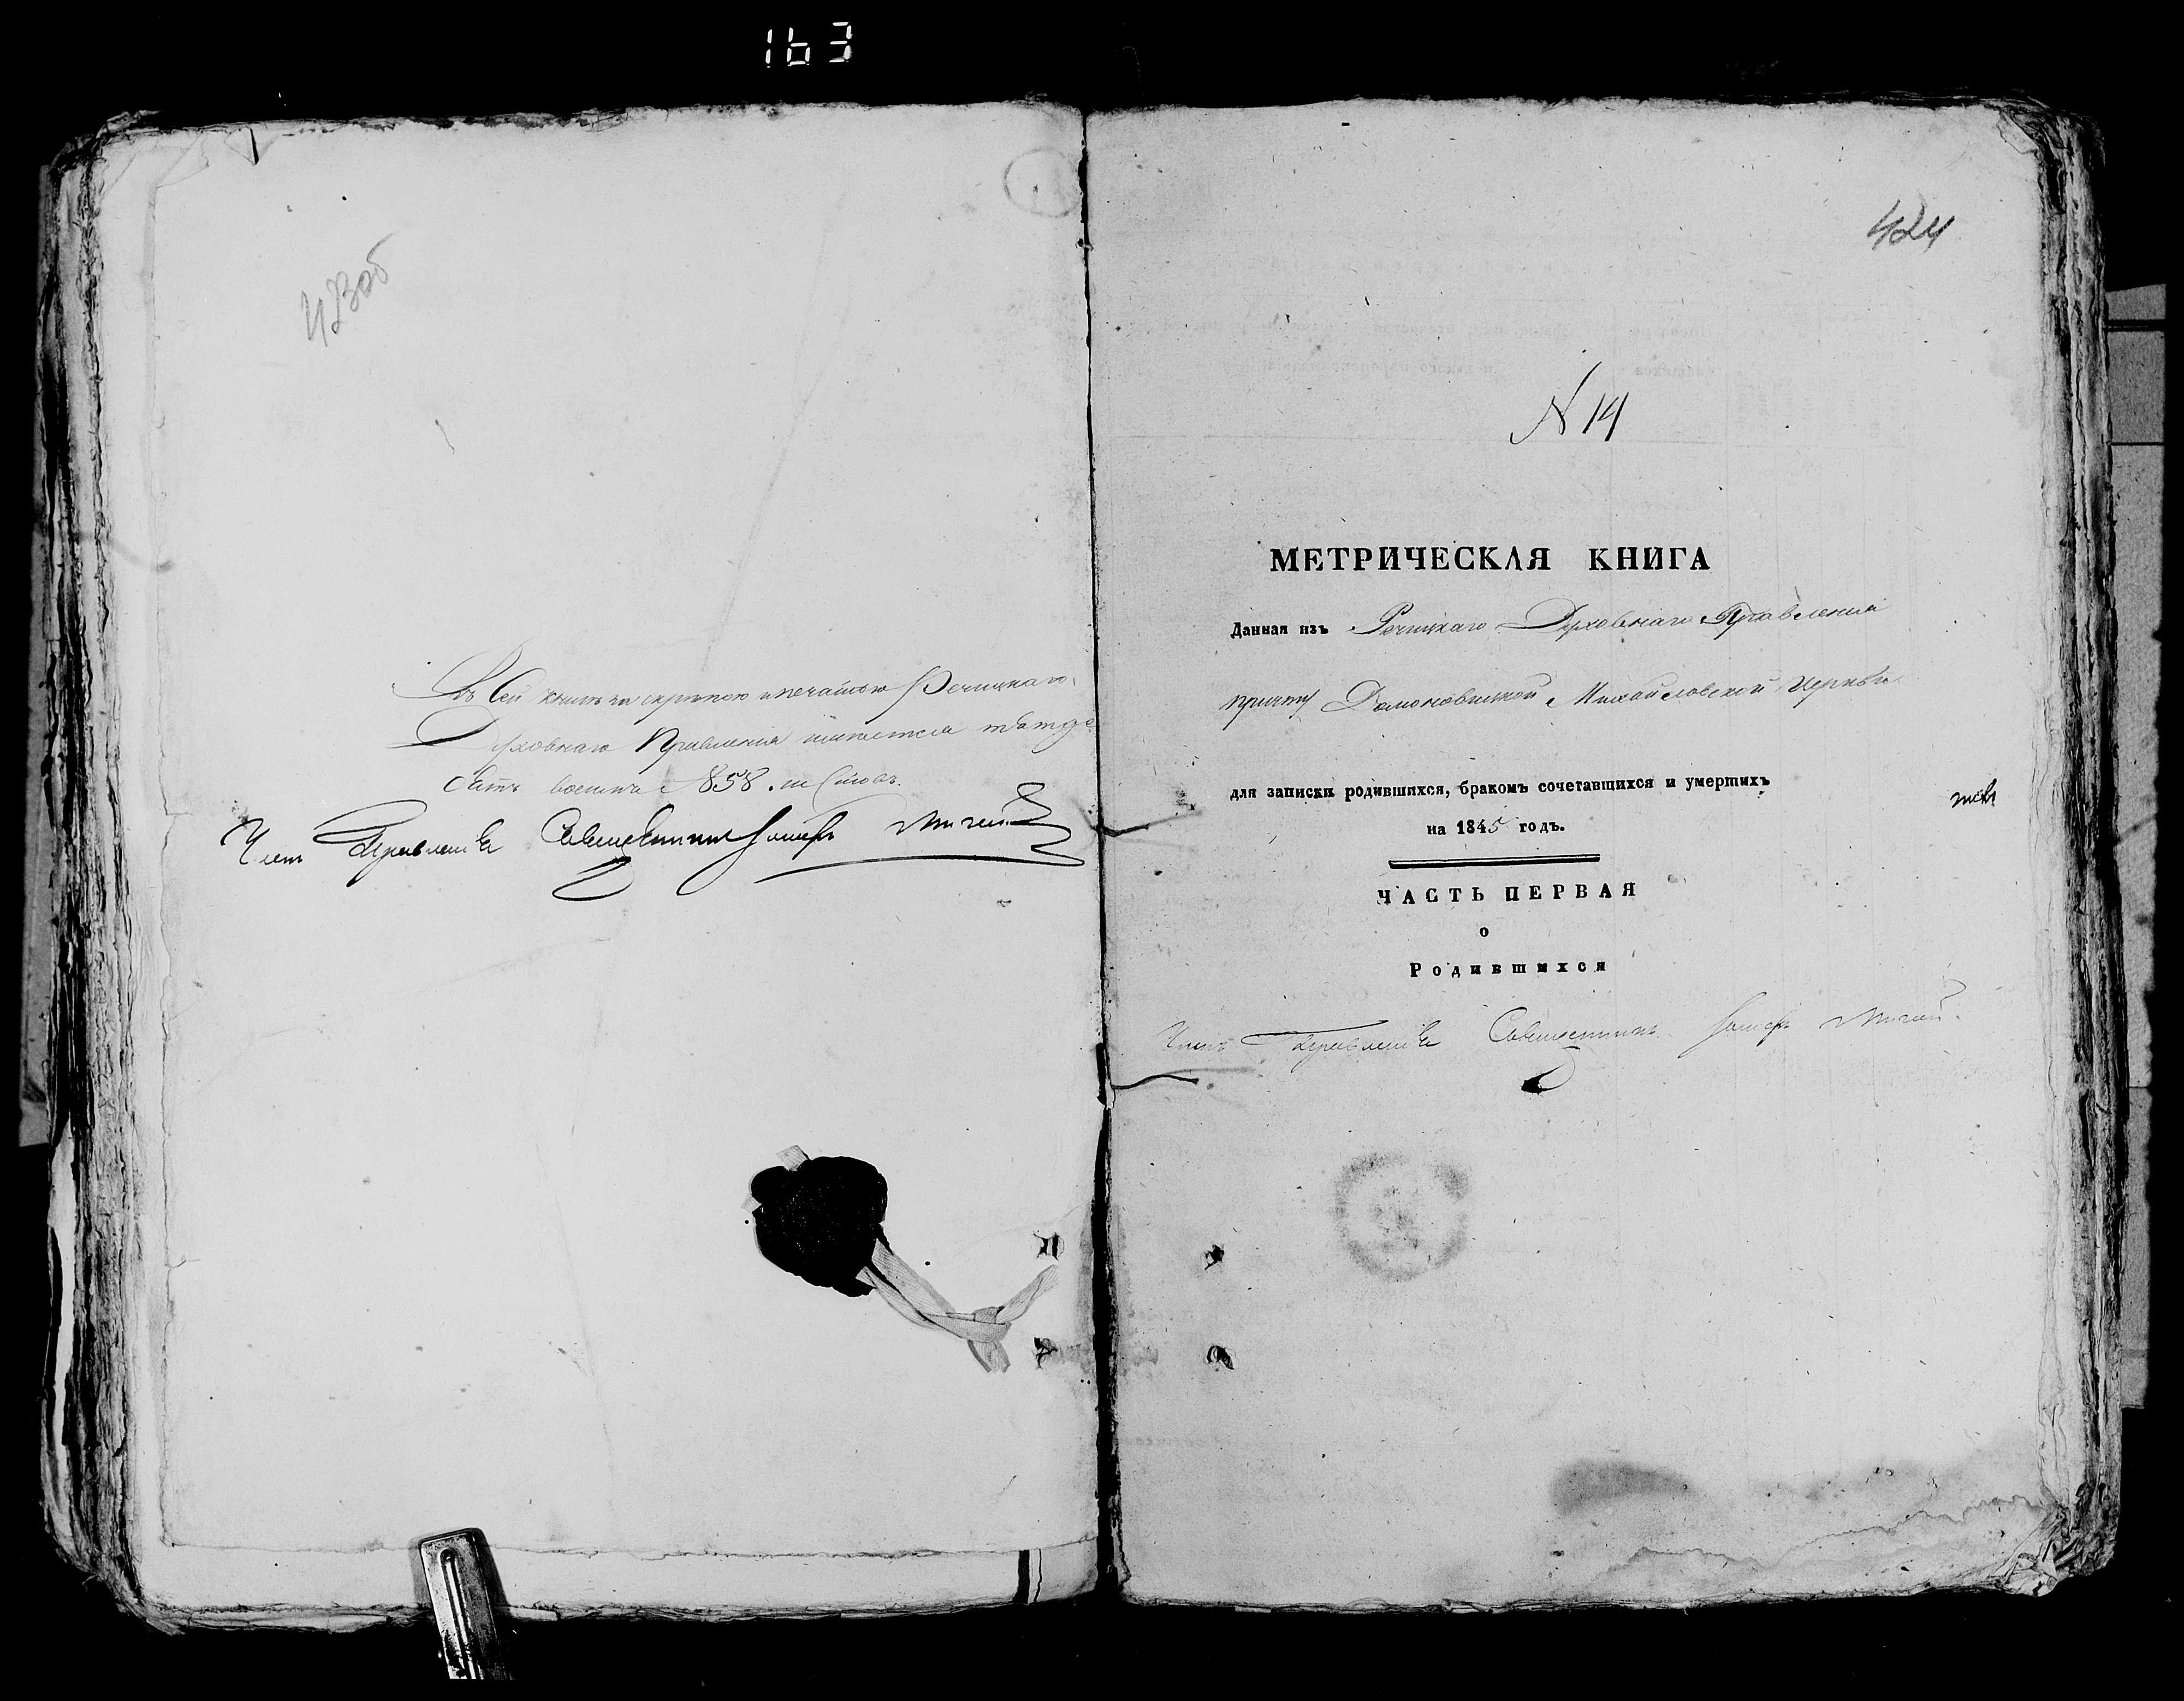 163
423об
Въ сей книгѣ за скрѣпою и печатью Речицкаго
Духовнаго Правления имѣется тѣтде
сятъ восемь 858 листовъ.
Членъ Правленiя Священникъ
424
N 14
МЕТРИЧЕСКАЯ КНИГА
Данная изъ Речицкаго Духовнаго Правления
причту Домоновицкой Михайловской церкви
для записки родившихся, бракомъ сочетавшихся и умершихъ
на 1845 годъ.
ЧАСТЬ ПЕРВАЯ
о
Родившихся
Членъ Правленiя Священникъ